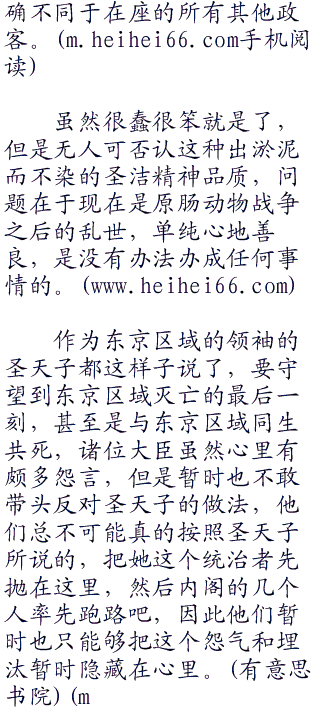 确不同于在座的所有其他政
客。(m.heihei66.com手机阅
读)
虽然很蠢很笨就是了，
但是无人可否认这种出淤泥
而不染的圣洁精神品质，问
题在于现在是原肠动物战争
之后的乱世，单纯心地善
良，是没有办法办成任何事
情的。(www.heihei66.com)
作为东京区域的领袖的
圣天子都这样子说了，要守
望到东京区域灭亡的最后一
刻，甚至是与东京区域同生
共死，诸位大臣虽然心里有
颇多怨言，但是暂时也不敢
带头反对圣天子的做法，他
们总不可能真的按照圣天子
所说的，把她这个统治者先
抛在这里，然后内阁的几个
人率先跑路吧，因此他们暂
时也只能够把这个怨气和埋
汰暂时隐藏在心里。(有意思
书院)(m